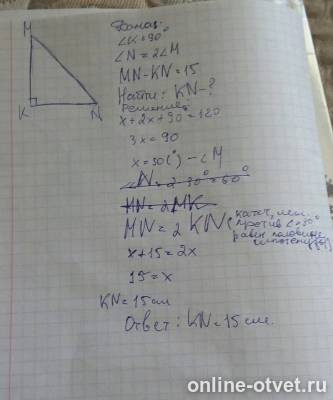 M
K
N
Дано:
∠K=90°
∠N=2∠M
MN-KN=15
Найти: KN-?
Решение:
x+2x+90=180
3x=90
x=30(°)-∠M
∠N=2·30°=60°
MN=2MK
MN=2 KN (катет, леж.
против ∠30°
равен половине
гипотенузы)
x+15=2x
15=x
KN=15см
Ответ: KN=15см.
online-otvet.ru